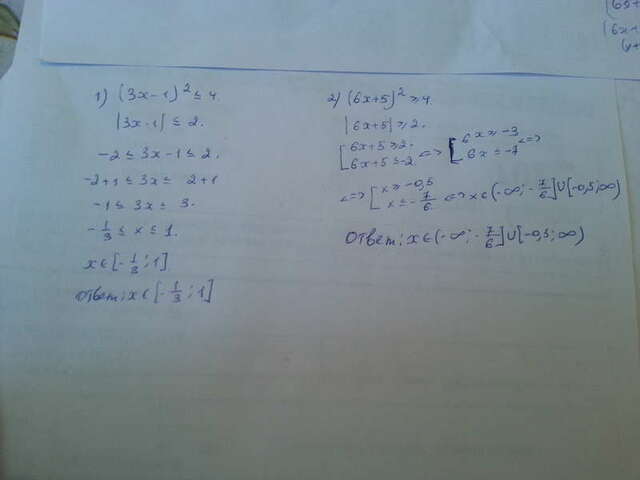 1) (3x-1)² ≤ 4.
|3x-1| ≤ 2.
-2 ≤ 3x-1 ≤ 2.
-2+1 ≤ 3x ≤ 2+1
-1 ≤ 3x ≤ 3.
-1/3 ≤ x ≤ 1.
x∈[-1/3; 1]
Ответ: x∈[-1/3; 1]
2) (6x+5)² ≥ 4.
|6x+5| ≥ 2.
[6x+5 ≥ 2. 6x+5 ≤ -2 <=> [6x ≥ -3 6x ≤ -7 <=>
<=> [x ≥ -0,5 x ≤ -7/6 <=> x∈(-∞; -7/6]∪[-0,5; ∞)
Ответ: x∈(-∞; -7/6]∪[-0,5; ∞)